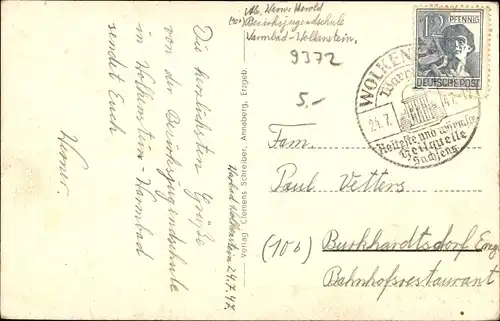 Die herzlichsten Grüße
von der Bezirksjugendschule
in Wolkenstein-Warmbad
sendet Euch
Werner
Verlag Clemens Schreiber, Annaberg, Erzgeb.
Warmbad Wolkenstein 24.7.47.
Abs. Werner Herold
(10) Bezirksjugendschule
Warmbad-Wolkenstein.
9372
5,-
12 PFENNIG
DEUTSCHE POST
WOLKEN
47-11
24.7.
Älteste und wärmste
Heilquelle
Sachsens
Fam.
Paul Vetters
(10b) Burkhardtsdorf Erzg
Bahnhofsrestaurant